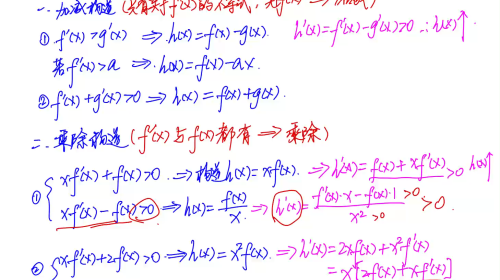 一.加减构造(只有关于f'(x)的不等式,无f(x) ⟹ 加减)
① f'(x)>g'(x) ⟹ h(x)=f(x)-g(x). h'(x)=f'(x)-g'(x)>0 ∴h(x)↑
若f'(x)>a ⟹ h(x)=f(x)-ax.
② f'(x)+g'(x)>0 ⟹ h(x)=f(x)+g(x).
二.乘除构造(f'(x)与f(x)都有 ⟹ 乘除)
① { xf'(x)+f(x)>0 ⟹ 构造h(x)=xf(x) ⟹ h'(x)=f(x)+xf'(x)>0 h(x)↑
x·f'(x)-f(x)>0 ⟹ h(x)=f(x)/x ⟹ h'(x)=(f'(x)·x-f(x)·1 >0)/(x² >0) >0
② { xf'(x)+2f(x)>0 ⟹ h(x)=x²f(x) ⟹ h'(x)=2xf(x)+x²f'(x)
=x[2f(x)+xf'(x)]